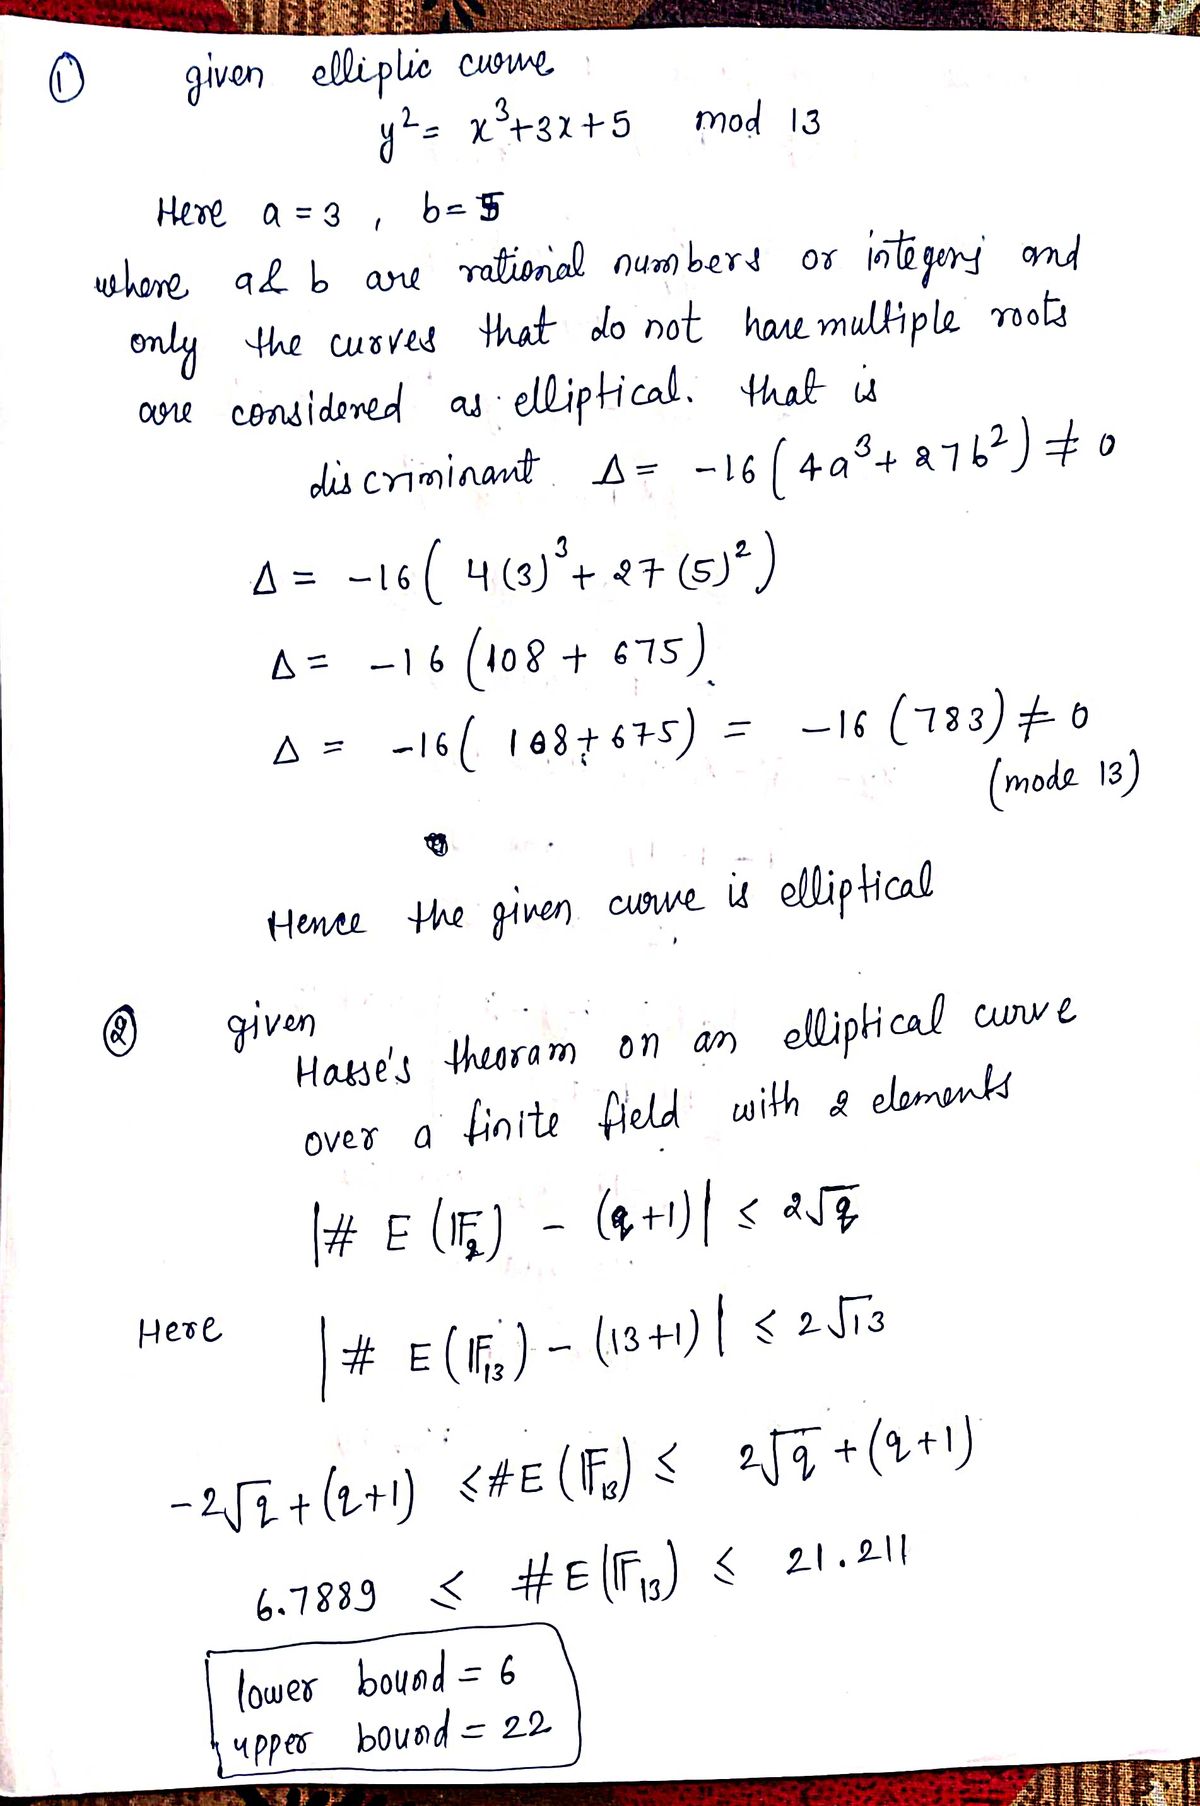 ① given elliptic curve
y² = x³+3x+5 mod 13
Here a = 3 , b = 5
where a & b are rational numbers or integers and
only the curves that do not have multiple roots
are considered as elliptical. that is
discriminant Δ = -16(4a³+27b²) ≠ 0
Δ = -16(4(3)³+27(5)²)
Δ = -16(108 + 675)
Δ = -16(108+675) = -16(783) ≠ 0
(mode 13)
Hence the given curve is elliptical
② given
Hasse's theoram on an elliptical curve
over a finite field with q elements
|# E(𝔽q) - (q+1)| ≤ 2√q
Here |# E(𝔽₁₃) - (13+1)| ≤ 2√13
-2√q + (q+1) ≤ #E(𝔽₁₃) ≤ 2√q + (q+1)
6.7889 ≤ #E(𝔽₁₃) ≤ 21.211
lower bound = 6
upper bound = 22